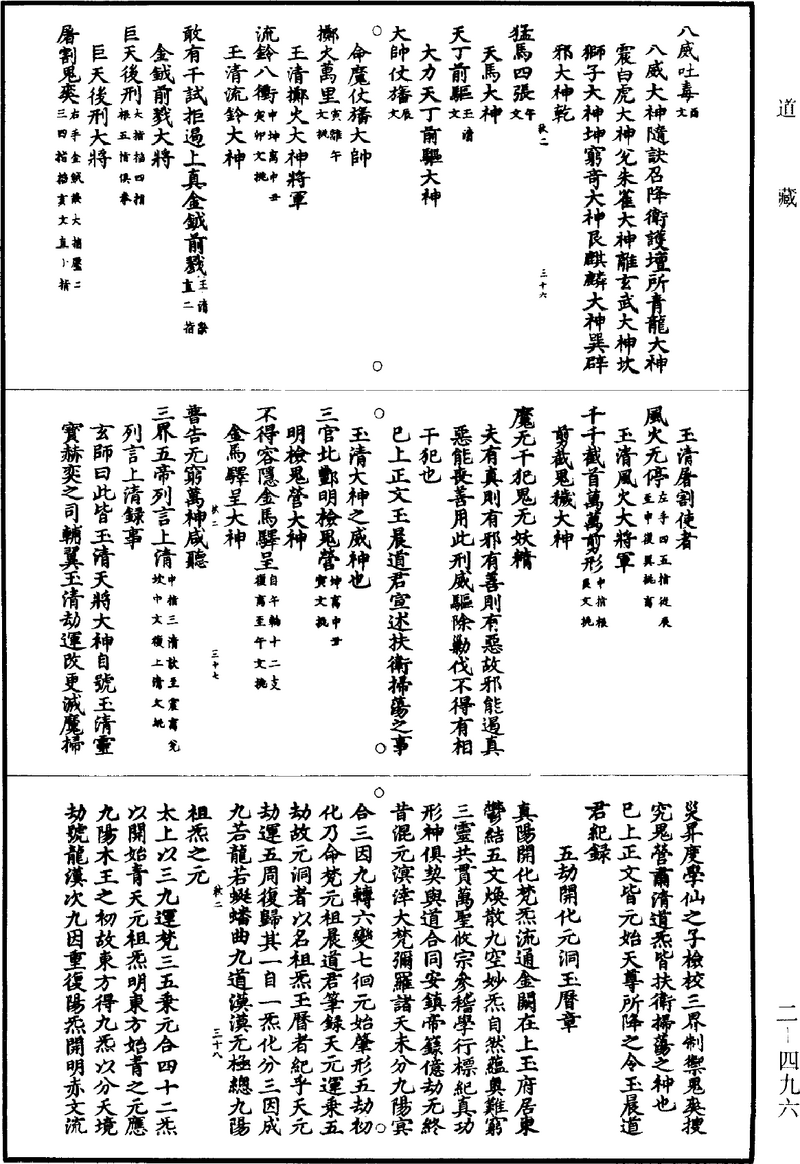 道藏
八威吐毒酉文
八威大神隨訣召降衛護壇所青龍大神
震白虎大神兌朱雀大神離玄武大神坎
獅子大神坤窮奇大神艮麒麟大神巽辟
邪大神乾
猛馬四張午文
天馬大神
天丁前驅玉清文
大力天丁前驅大神
大帥仗旛辰文
命魔仗旛大帥
擲火萬里寅離午文挑
玉清擲火大神將軍
流鈴八衝申坤離中丑寅卯文挑
玉清流鈴大神
敢有干試拒遏上真金鉞前戮玉清訣直二指
金鉞前戮大將
巨天後刑大指掐四指根五指俱拳
巨天後刑大將
屠割鬼爽右手金鉞訣大指壓二三四指掐亥文直小指
三十六
玉清屠割使者
風火无停左手四五指從辰至申復巽挑离
玉清風火大將軍
千千截首萬萬剪形中指根艮文挑
剪截鬼穢大神
魔无干犯鬼无妖精
夫有真則有邪有善則有惡故邪能遏真
惡能喪善用此刑威驅除勦伐不得有相
干犯也
已上正文玉晨道君宣述扶衛掃蕩之事
玉清大神之威神也
三官北酆明檢鬼營坤离中丑寅文挑
明檢鬼營大神
不得容隱金馬驛呈自午輪十二支復离至午文挑
金馬驛呈大神
普告无窮萬神咸聽
三界五帝列言上清中指三清訣至震离兌坎中文復上清文挑
列言上清錄事
玄師曰此皆玉清天將大神自號玉清靈
寶赫奕之司輔翼玉清劫運改更滅魔掃
三十七
災昇度學仙之子檢校三界制禦鬼爽搜
究鬼營肅清道炁皆扶衛掃蕩之神也
已上正文皆元始天尊所降之令玉晨道
君紀錄
五劫開化元洞玉曆章
真陽開化梵炁流通金闕在上玉府居東
鬱結五文煥散九空妙炁自然蘊奧難窮
三靈共貫萬聖攸宗參稽學行標紀真功
形神俱契與道合同安鎮帝籙億劫无終
昔混元溟涬大梵彌羅諸天未分九陽寘
合三因九轉六變七徊元始肇形五劫初
化乃命梵元祖晨道君筆錄天元運乘五
劫故元洞者以名祖炁玉曆者紀乎天元
劫運五周復歸其一自一炁化分三因成
九若龍若蜒蟠曲九道漠漠元極總九陽
祖炁之元
太上以三九運梵三五乘元合四十二炁
以開始青天元祖炁明東方始青之元應
九陽木王之初故東方得九炁以分天境
劫號龍漢次九因重復陽炁開明赤文流
三十八
二-四九六